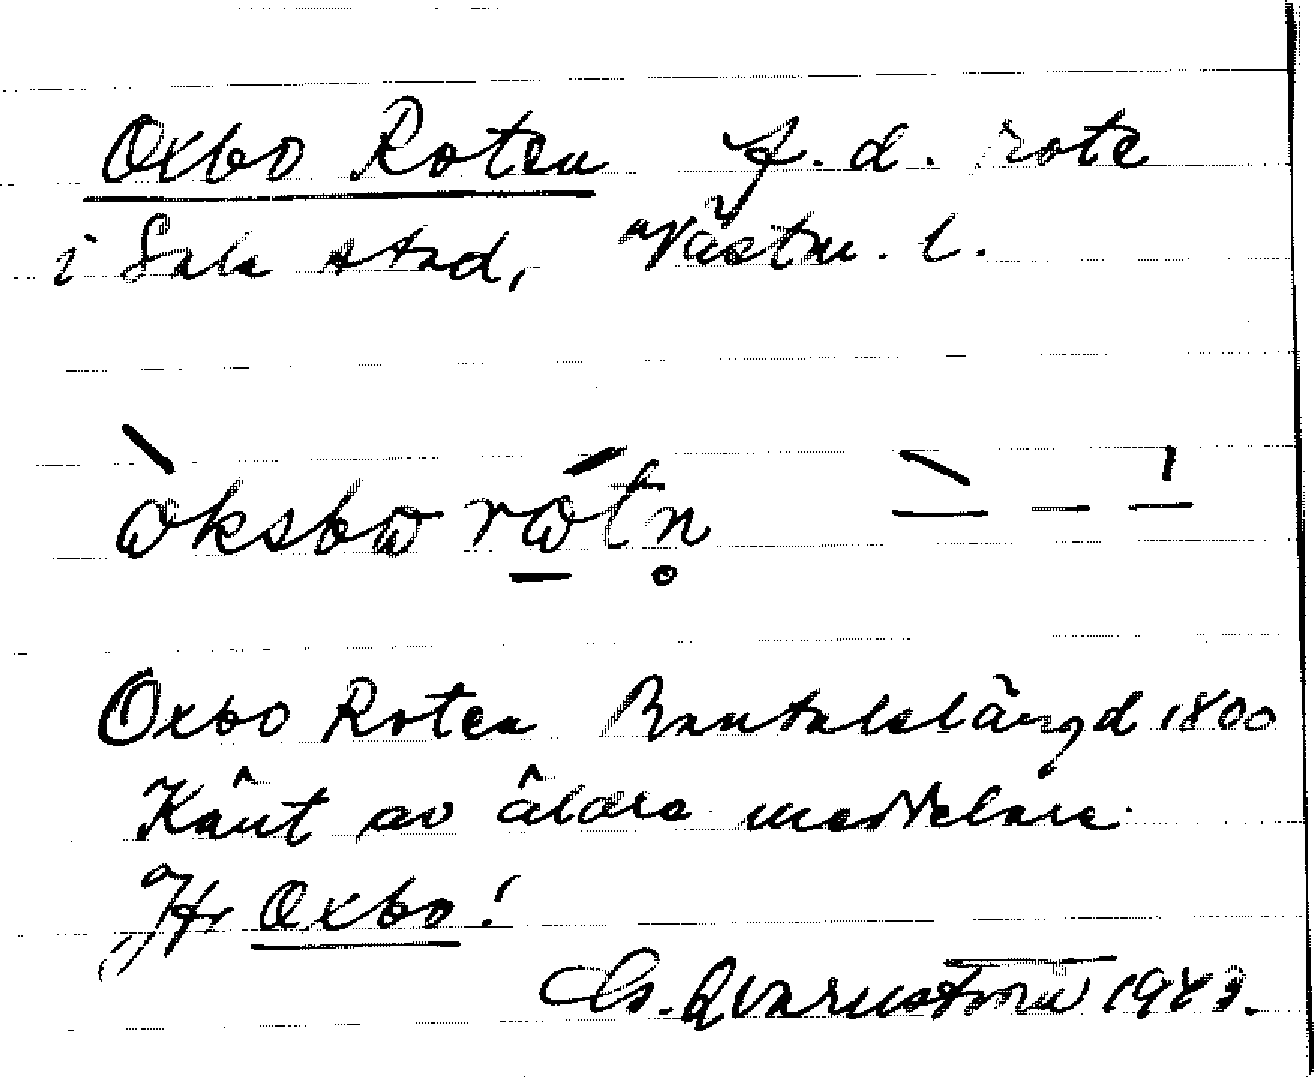 Oxbo Roten f.d. rote
i Sala stad, Västm. l.
ὼksbω rώtn̥
Oxbo Roten Mantalslängd 1800
Känt av äldre meddelare.
Jfr Oxbo!
G. Qvarnström 1943.